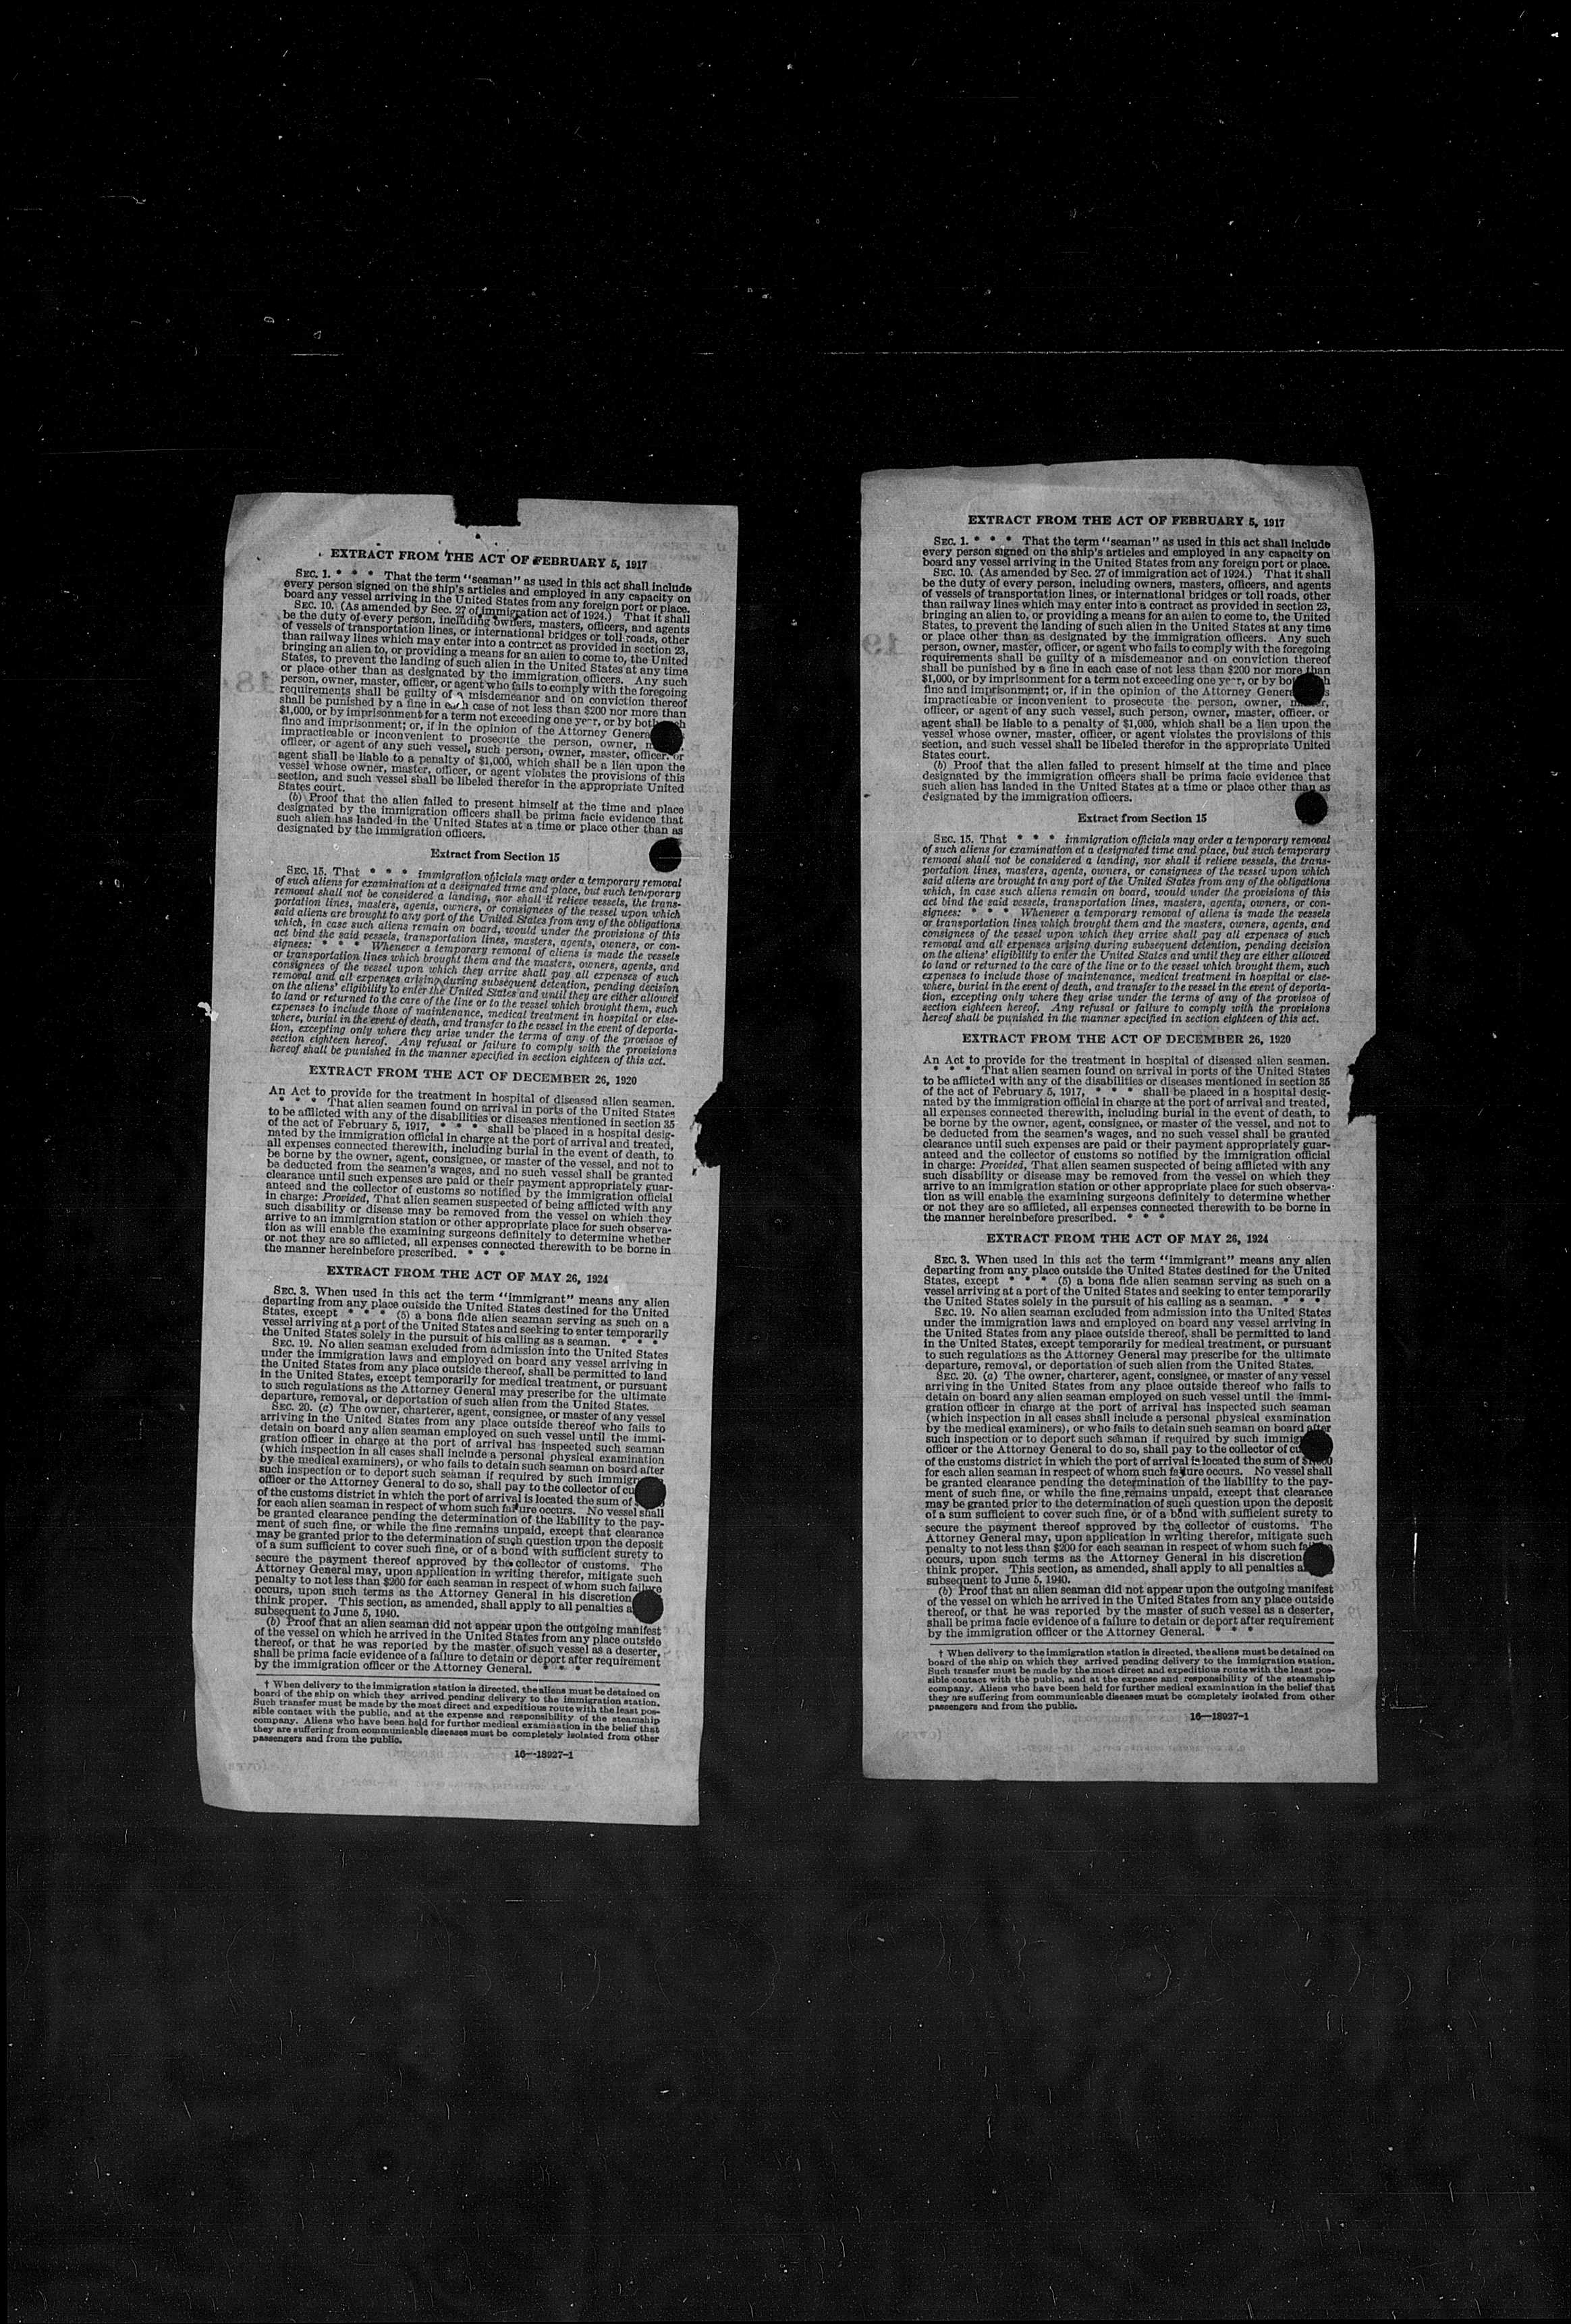 EXTRACT FROM THE ACT OF FEBRUARY 5, 1917
SEC. 1. * * * That the term "seaman" as used in this act shall include
every person signed on the ship's articles and employed in any capacity on
board any vessel arriving in the United States from any foreign port or place.
SEC. 10. (As amended by Sec. 27 of immigration act of 1924.) That it shall
be the duty of every person, including owners, masters, officers, and agents
of vessels of transportation lines, or international bridges or toll roads, other
than railway lines which may enter into a contract as provided in section 23,
bringing an alien to, or providing a means for an alien to come to, the United
States, to prevent the landing of such alien in the United States at any time
or place other than as designated by the immigration officers. Any such
person, owner, master, officer, or agent who fails to comply with the foregoing
requirements shall be guilty of a misdemeanor and on conviction thereof
shall be punished by a fine in each case of not less than $200 nor more than
$1,000, or by imprisonment for a term not exceeding one year, or by both
fine and imprisonment; or, if in the opinion of the Attorney
impracticable or inconvenient to prosecute the person, owner,
officer, or agent of any such vessel, such person, owner, master, officer, or
agent shall be liable to a penalty of $1,000, which shall be a lien upon the
vessel whose owner, master, officer, or agent violates the provisions of this
section, and such vessel shall be libeled therefor in the appropriate United
States court.
(b) Proof that the alien failed to present himself at the time and place
designated by the immigration officers shall be prima facie evidence that
such alien has landed in the United States at a time or place other than as
designated by the immigration officers.
Extract from Section 15
SEC. 15. That * * * immigration officials may order a temporary removal
of such aliens for examination at a designated time and place, but such temporary
removal shall not be considered a landing, nor shall it relieve vessels, the trans-
portation lines, masters, agents, owners, or consignees of the vessel upon which
said aliens are brought to any port of the United States from any of the obligations
which, in case such aliens remain on board, would under the provisions of this
act bind the said vessels, transportation lines, masters, agents, owners, or con-
signees: * * * Whenever a temporary removal of aliens is made the vessels
or transportation lines which brought them and the masters, owners, agents, and
consignees of the vessel upon which they arrive shall pay all expenses of such
removal and all expenses arising during subsequent detention, pending decision
on the aliens' eligibility to enter the United States and until they are either allowed
to land or returned to the care of the line or to the vessel which brought them, such
expenses to include those of maintenance, medical treatment in hospital or else-
where, burial in the event of death, and transfer to the vessel in the event of deporta-
tion, excepting only where they arise under the terms of any of the provisos of
section eighteen hereof. Any refusal or failure to comply with the provisions
hereof shall be punished in the manner specified in section eighteen of this act.
EXTRACT FROM THE ACT OF DECEMBER 26, 1920
An Act to provide for the treatment in hospital of diseased alien seamen.
* * * That alien seamen found on arrival in ports of the United States
to be afflicted with any of the disabilities or diseases mentioned in section 35
of the act of February 5, 1917, * * * shall be placed in a hospital desig-
nated by the immigration official in charge at the port of arrival and treated,
all expenses connected therewith, including burial in the event of death, to
be borne by the owner, agent, consignee, or master of the vessel, and not to
be deducted from the seamen's wages, and no such vessel shall be granted
clearance until such expenses are paid or their payment appropriately guar-
anteed and the collector of customs so notified by the immigration official
in charge: Provided, That alien seamen suspected of being afflicted with any
such disability or disease may be removed from the vessel on which they
arrive to an immigration station or other appropriate place for such observa-
tion as will enable the examining surgeons definitely to determine whether
or not they are so afflicted, all expenses connected therewith to be borne in
the manner hereinbefore prescribed. * * *
EXTRACT FROM THE ACT OF MAY 26, 1924
SEC. 3. When used in this act the term "immigrant" means any alien
departing from any place outside the United States destined for the United
States, except * * * (5) a bona fide alien seaman serving as such on a
vessel arriving at a port of the United States and seeking to enter temporarily
the United States solely in the pursuit of his calling as a seaman. * * *
SEC. 19. No alien seaman excluded from admission into the United States
under the immigration laws and employed on board any vessel arriving in
the United States from any place outside thereof, shall be permitted to land
in the United States, except temporarily for medical treatment, or pursuant
to such regulations as the Attorney General may prescribe for the ultimate
departure, removal, or deportation of such alien from the United States.
SEC. 20. (a) The owner, charterer, agent, consignee, or master of any vessel
arriving in the United States from any place outside thereof who fails to
detain on board any alien seaman employed on such vessel until the immi-
gration officer in charge at the port of arrival has inspected such seaman
(which inspection in all cases shall include a personal physical examination
by the medical examiners), or who fails to detain such seaman on board after
such inspection or to deport such seaman if required by such
officer or the Attorney General to do so, shall pay to the collector of
of the customs district in which the port of arrival is located the sum of
for each alien seaman in respect of whom such failure occurs. No vessel shall
be granted clearance pending the determination of the liability to the pay-
ment of such fine, or while the fine remains unpaid, except that clearance
may be granted prior to the determination of such question upon the deposit
of a sum sufficient to cover such fine, or of a bond with sufficient surety to
secure the payment thereof approved by the collector of customs. The
Attorney General may, upon application in writing therefor, mitigate such
penalty to not less than $200 for each seaman in respect of whom such failure
occurs, upon such terms as the Attorney General in his discretion
think proper. This section, as amended, shall apply to all penalties
subsequent to June 5, 1940.
(b) Proof that an alien seaman did not appear upon the outgoing manifest
of the vessel on which he arrived in the United States from any place outside
thereof, or that he was reported by the master of such vessel as a deserter,
shall be prima facie evidence of a failure to detain or deport after requirement
by the immigration officer or the Attorney General. * * *
† When delivery to the immigration station is directed, the aliens must be detained on
board of the ship on which they arrived pending delivery to the immigration station.
Such transfer must be made by the most direct and expeditious route with the least pos-
sible contact with the public, and at the expense and responsibility of the steamship
company. Aliens who have been held for further medical examination in the belief that
they are suffering from communicable diseases must be completely isolated from other
passengers and from the public.
16—18927-1
EXTRACT FROM THE ACT OF FEBRUARY 5, 1917
SEC. 1. * * * That the term "seaman" as used in this act shall include
every person signed on the ship's articles and employed in any capacity on
board any vessel arriving in the United States from any foreign port or place.
SEC. 10. (As amended by Sec. 27 of immigration act of 1924.) That it shall
be the duty of every person, including owners, masters, officers, and agents
of vessels of transportation lines, or international bridges or toll roads, other
than railway lines which may enter into a contract as provided in section 23,
bringing an alien to, or providing a means for an alien to come to, the United
States, to prevent the landing of such alien in the United States at any time
or place other than as designated by the immigration officers. Any such
person, owner, master, officer, or agent who fails to comply with the foregoing
requirements shall be guilty of a misdemeanor and on conviction thereof
shall be punished by a fine in each case of not less than $200 nor more than
$1,000, or by imprisonment for a term not exceeding one year, or by
fine and imprisonment; or, if in the opinion of the Attorney
impracticable or inconvenient to prosecute the person, owner,
officer, or agent of any such vessel, such person, owner, master, officer, or
agent shall be liable to a penalty of $1,000, which shall be a lien upon the
vessel whose owner, master, officer, or agent violates the provisions of this
section, and such vessel shall be libeled therefor in the appropriate United
States court.
(b) Proof that the alien failed to present himself at the time and place
designated by the immigration officers shall be prima facie evidence that
such alien has landed in the United States at a time or place other than as
designated by the immigration officers.
Extract from Section 15
SEC. 15. That * * * immigration officials may order a temporary removal
of such aliens for examination at a designated time and place, but such temporary
removal shall not be considered a landing, nor shall it relieve vessels, the trans-
portation lines, masters, agents, owners, or consignees of the vessel upon which
said aliens are brought to any port of the United States from any of the obligations
which, in case such aliens remain on board, would under the provisions of this
act bind the said vessels, transportation lines, masters, agents, owners, or con-
signees: * * * Whenever a temporary removal of aliens is made the vessels
or transportation lines which brought them and the masters, owners, agents, and
consignees of the vessel upon which they arrive shall pay all expenses of such
removal and all expenses arising during subsequent detention, pending decision
on the aliens' eligibility to enter the United States and until they are either allowed
to land or returned to the care of the line or to the vessel which brought them, such
expenses to include those of maintenance, medical treatment in hospital or else-
where, burial in the event of death, and transfer to the vessel in the event of deporta-
tion, excepting only where they arise under the terms of any of the provisos of
section eighteen hereof. Any refusal or failure to comply with the provisions
hereof shall be punished in the manner specified in section eighteen of this act.
EXTRACT FROM THE ACT OF DECEMBER 26, 1920
An Act to provide for the treatment in hospital of diseased alien seamen.
* * * That alien seamen found on arrival in ports of the United States
to be afflicted with any of the disabilities or diseases mentioned in section 35
of the act of February 5, 1917, * * * shall be placed in a hospital desig-
nated by the immigration official in charge at the port of arrival and treated,
all expenses connected therewith, including burial in the event of death, to
be borne by the owner, agent, consignee, or master of the vessel, and not to
be deducted from the seamen's wages, and no such vessel shall be granted
clearance until such expenses are paid or their payment appropriately guar-
anteed and the collector of customs so notified by the immigration official
in charge: Provided, That alien seamen suspected of being afflicted with any
such disability or disease may be removed from the vessel on which they
arrive to an immigration station or other appropriate place for such observa-
tion as will enable the examining surgeons definitely to determine whether
or not they are so afflicted, all expenses connected therewith to be borne in
the manner hereinbefore prescribed. * * *
EXTRACT FROM THE ACT OF MAY 26, 1924
SEC. 3. When used in this act the term "immigrant" means any alien
departing from any place outside the United States destined for the United
States, except * * * (5) a bona fide alien seaman serving as such on a
vessel arriving at a port of the United States and seeking to enter temporarily
the United States solely in the pursuit of his calling as a seaman. * * *
SEC. 19. No alien seaman excluded from admission into the United States
under the immigration laws and employed on board any vessel arriving in
the United States from any place outside thereof, shall be permitted to land
in the United States, except temporarily for medical treatment, or pursuant
to such regulations as the Attorney General may prescribe for the ultimate
departure, removal, or deportation of such alien from the United States.
SEC. 20. (a) The owner, charterer, agent, consignee, or master of any vessel
arriving in the United States from any place outside thereof who fails to
detain on board any alien seaman employed on such vessel until the immi-
gration officer in charge at the port of arrival has inspected such seaman
(which inspection in all cases shall include a personal physical examination
by the medical examiners), or who fails to detain such seaman on board after
such inspection or to deport such seaman if required by such
officer or the Attorney General to do so, shall pay to the collector of
of the customs district in which the port of arrival is located the sum of
for each alien seaman in respect of whom such failure occurs. No vessel shall
be granted clearance pending the determination of the liability to the pay-
ment of such fine, or while the fine remains unpaid, except that clearance
may be granted prior to the determination of such question upon the deposit
of a sum sufficient to cover such fine, or of a bond with sufficient surety to
secure the payment thereof approved by the collector of customs. The
Attorney General may, upon application in writing therefor, mitigate such
penalty to not less than $200 for each seaman in respect of whom such
occurs, upon such terms as the Attorney General in his discretion
think proper. This section, as amended, shall apply to all penalties
subsequent to June 5, 1940.
(b) Proof that an alien seaman did not appear upon the outgoing manifest
of the vessel on which he arrived in the United States from any place outside
thereof, or that he was reported by the master of such vessel as a deserter,
shall be prima facie evidence of a failure to detain or deport after requirement
by the immigration officer or the Attorney General. * * *
† When delivery to the immigration station is directed, the aliens must be detained on
board of the ship on which they arrived pending delivery to the immigration station.
Such transfer must be made by the most direct and expeditious route with the least pos-
sible contact with the public, and at the expense and responsibility of the steamship
company. Aliens who have been held for further medical examination in the belief that
they are suffering from communicable diseases must be completely isolated from other
passengers and from the public.
16—18927-1